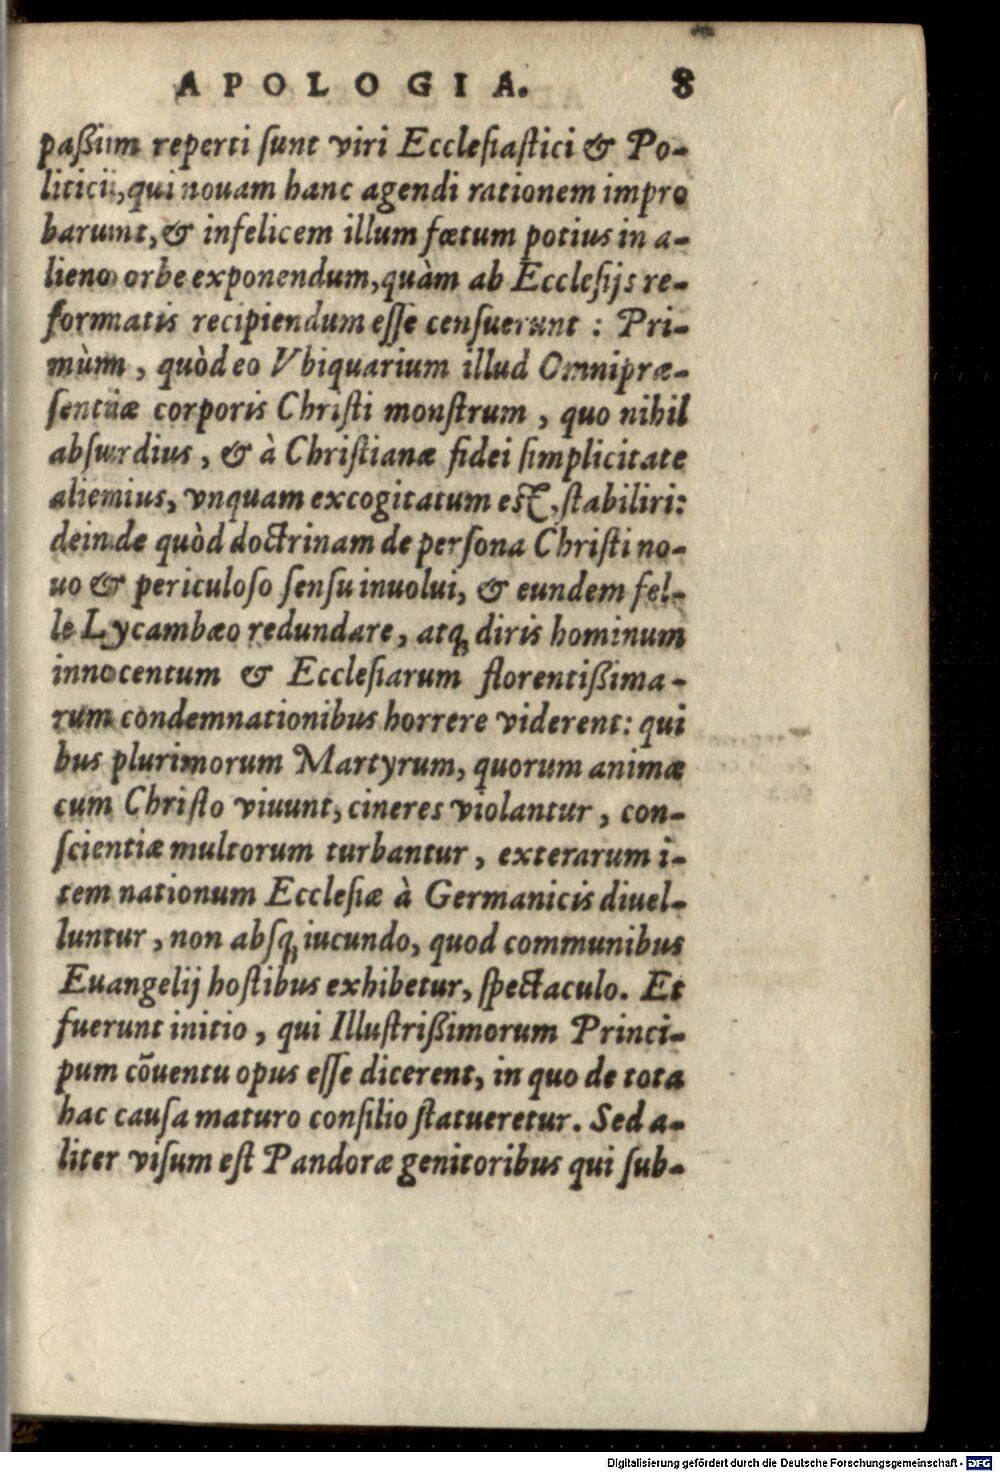 APOLOGIA. 8
paßim reperti ſunt viri Eccleſiaſtici & Po-
litici, qui nouam hanc agendi rationem impro
barunt, & infelicem illum fœtum potius in a-
lieno orbe exponendum, quàm ab Eccleſijs re-
formatis recipiendum eſſe cenſuerunt : Pri-
mùm, quòd eo Vbiquarium illud Omnipræ-
ſentiæ corporis Chriſti monſtrum, quo nihil
abſurdius, & à Chriſtianæ fidei ſimplicitate
alienius, vnquam excogitatum eſt, ſtabiliri:
deinde quòd doctrinam de perſona Chriſti no-
uo & periculoſo ſenſu inuolui, & eundem fel-
le Lycambæo redundare, atq́ diris hominum
innocentum & Eccleſiarum florentißima-
rum condemnationibus horrere viderent: qui
bus plurimorum Martyrum, quorum animæ
cum Chriſto viuunt, cineres violantur, con-
ſcientiæ multorum turbantur, exterarum i-
tem nationum Eccleſiæ à Germanicis diuel-
luntur, non abſq́ iucundo, quod communibus
Euangelij hoſtibus exhibetur, ſpectaculo. Et
fuerunt initio, qui Illuſtrißimorum Princi-
pum cõuentu opus eſſe dicerent, in quo de tota
hac cauſa maturo conſilio ſtatueretur. Sed a-
liter viſum eſt Pandoræ genitoribus qui ſub-
Digitalisierung gefördert durch die Deutsche Forschungsgemeinschaft - DFG